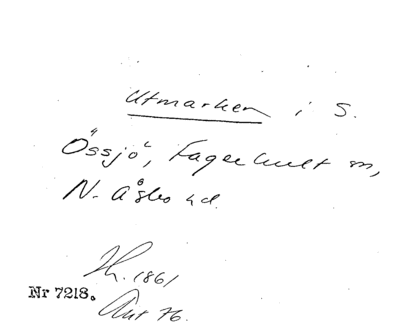 Utmarken i S.
Össjö, Fagerhult m,
N. Åsbo hd.
Th. 1861
Nr 7218.
Ant 76.